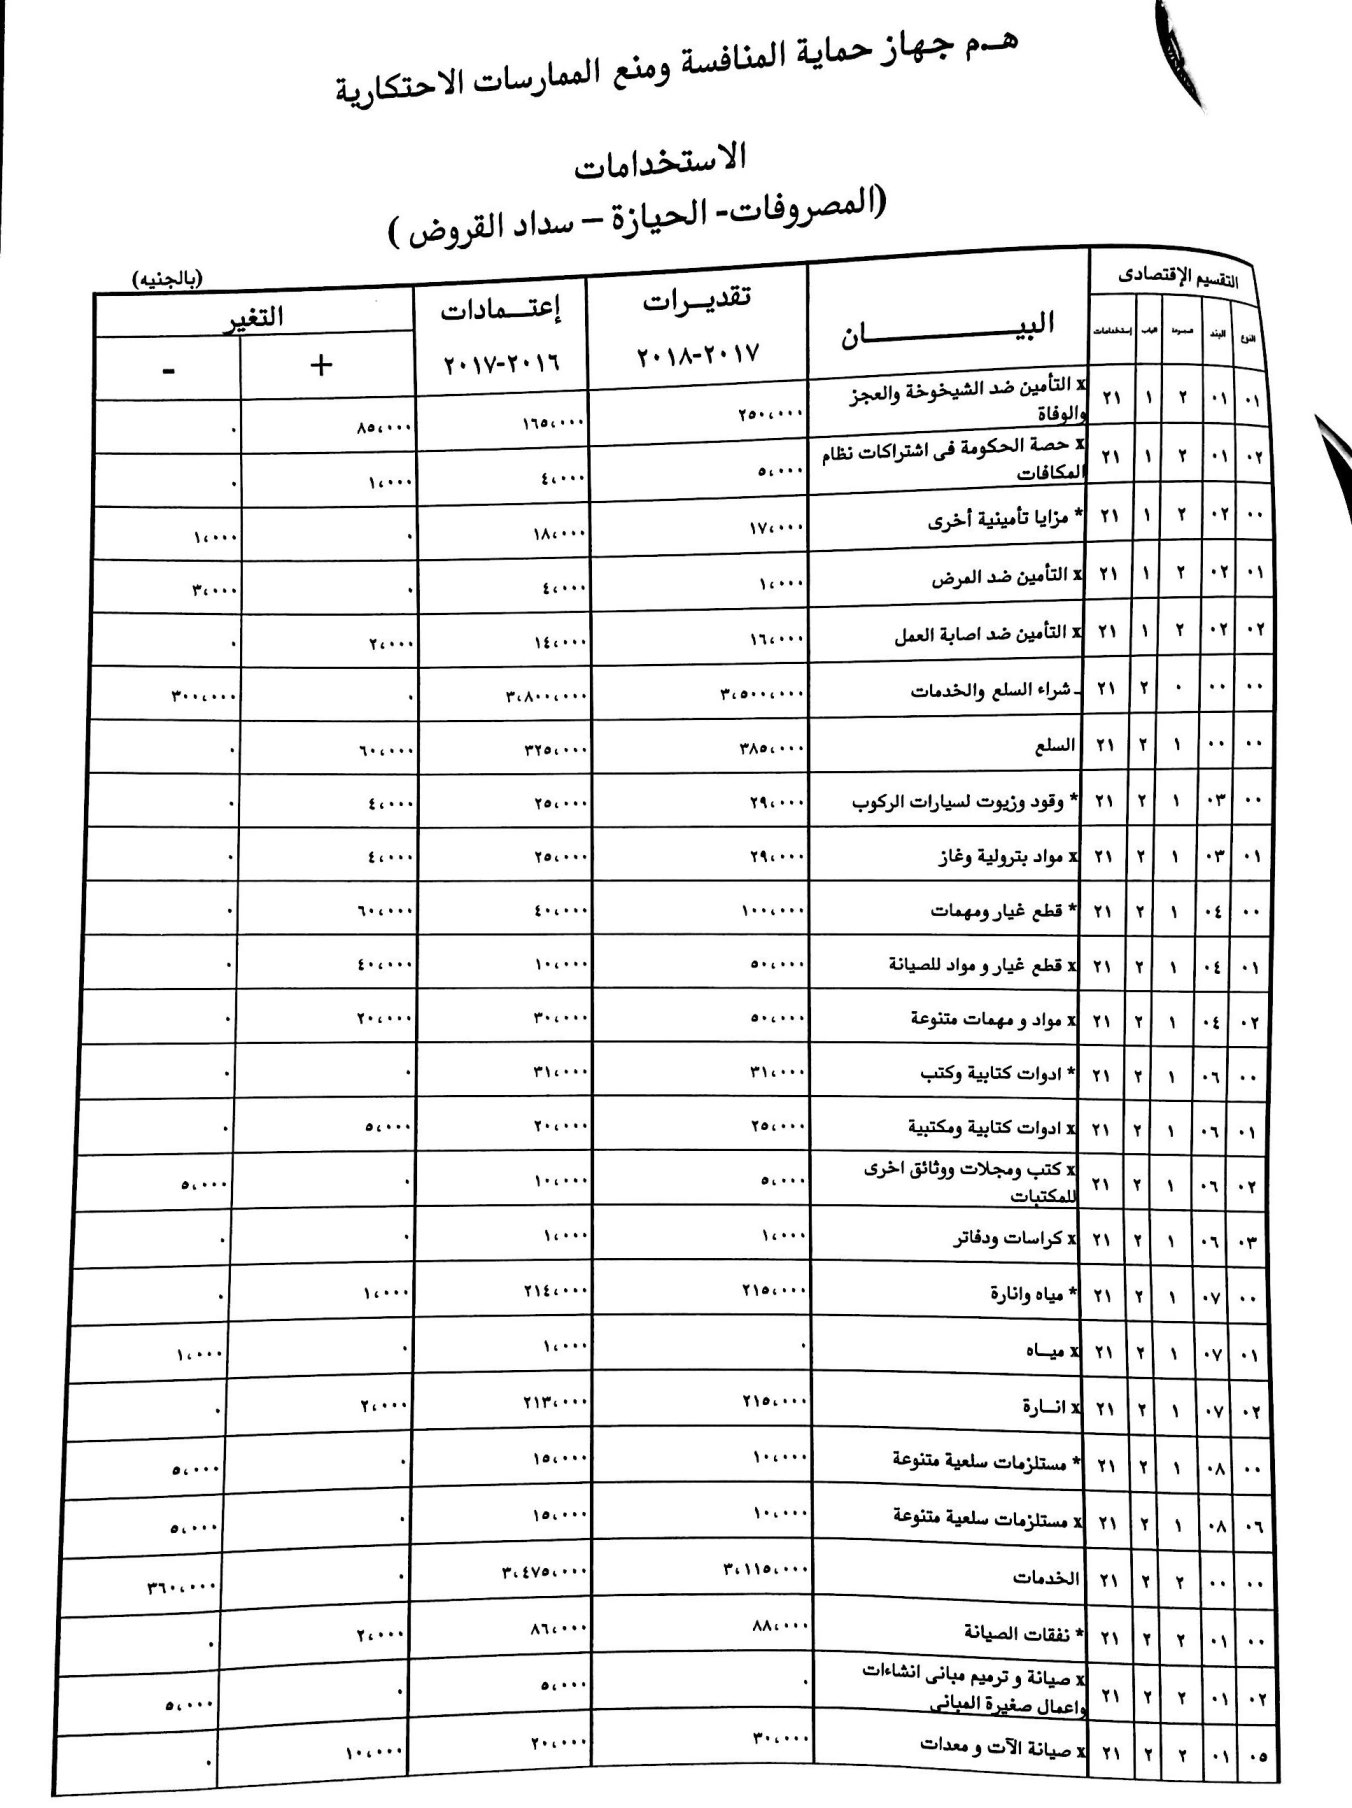 هـ.م جهاز حماية المنافسة ومنع الممارسات الاحتكارية
الاستخدامات
(المصروفات- الحيازة – سداد القروض )
(بالجنيه)
التقسيم الإقتصادى البيـــــــــــان تقديـــرات ٢٠١٧-٢٠١٨ إعتـــمادات ٢٠١٦-٢٠١٧ التغير
النوع البند المجموعة الباب إستخدامات + -
٠١ ٠١ ٢ ١ ٢١ x التأمين ضد الشيخوخة والعجز والوفاة ٢٥٠،٠٠٠ ١٦٥،٠٠٠ ٨٥،٠٠٠ ٠
٠٢ ٠١ ٢ ١ ٢١ x حصة الحكومة فى اشتراكات نظام المكافات ٥،٠٠٠ ٤،٠٠٠ ١،٠٠٠ ٠
٠٠ ٠٢ ٢ ١ ٢١ * مزايا تأمينية أخرى ١٧،٠٠٠ ١٨،٠٠٠ ٠ ١،٠٠٠
٠١ ٠٢ ٢ ١ ٢١ x التأمين ضد المرض ١،٠٠٠ ٤،٠٠٠ ٠ ٣،٠٠٠
٠٢ ٠٢ ٢ ١ ٢١ x التأمين ضد اصابة العمل ١٦،٠٠٠ ١٤،٠٠٠ ٢،٠٠٠ ٠
٠٠ ٠٠ ٠ ٢ ٢١ ـ شراء السلع والخدمات ٣،٥٠٠،٠٠٠ ٣،٨٠٠،٠٠٠ ٠ ٣٠٠،٠٠٠
٠٠ ٠٠ ١ ٢ ٢١ السلع ٣٨٥،٠٠٠ ٣٢٥،٠٠٠ ٦٠،٠٠٠ ٠
٠٠ ٠٣ ١ ٢ ٢١ * وقود وزيوت لسيارات الركوب ٢٩،٠٠٠ ٢٥،٠٠٠ ٤،٠٠٠ ٠
٠١ ٠٣ ١ ٢ ٢١ x مواد بترولية وغاز ٢٩،٠٠٠ ٢٥،٠٠٠ ٤،٠٠٠ ٠
٠٠ ٠٤ ١ ٢ ٢١ * قطع غيار ومهمات ١٠٠،٠٠٠ ٤٠،٠٠٠ ٦٠،٠٠٠ ٠
٠١ ٠٤ ١ ٢ ٢١ x قطع غيار و مواد للصيانة ٥٠،٠٠٠ ١٠،٠٠٠ ٤٠،٠٠٠ ٠
٠٢ ٠٤ ١ ٢ ٢١ x مواد و مهمات متنوعة ٥٠،٠٠٠ ٣٠،٠٠٠ ٢٠،٠٠٠ ٠
٠٠ ٠٦ ١ ٢ ٢١ * ادوات كتابية وكتب ٣١،٠٠٠ ٣١،٠٠٠ ٠ ٠
٠١ ٠٦ ١ ٢ ٢١ x ادوات كتابية ومكتبية ٢٥،٠٠٠ ٢٠،٠٠٠ ٥،٠٠٠ ٠
٠٢ ٠٦ ١ ٢ ٢١ x كتب ومجلات ووثائق اخرى للمكتبات ٥،٠٠٠ ١٠،٠٠٠ ٠ ٥،٠٠٠
٠٣ ٠٦ ١ ٢ ٢١ x كراسات ودفاتر ١،٠٠٠ ١،٠٠٠ ٠ ٠
٠٠ ٠٧ ١ ٢ ٢١ * مياه وانارة ٢١٥،٠٠٠ ٢١٤،٠٠٠ ١،٠٠٠ ٠
٠١ ٠٧ ١ ٢ ٢١ x ميــاه ٠ ١،٠٠٠ ٠ ١،٠٠٠
٠٢ ٠٧ ١ ٢ ٢١ x انــارة ٢١٥،٠٠٠ ٢١٣،٠٠٠ ٢،٠٠٠ ٠
٠٠ ٠٨ ١ ٢ ٢١ * مستلزمات سلعية متنوعة ١٠،٠٠٠ ١٥،٠٠٠ ٠ ٥،٠٠٠
٠٦ ٠٨ ١ ٢ ٢١ x مستلزمات سلعية متنوعة ١٠،٠٠٠ ١٥،٠٠٠ ٠ ٥،٠٠٠
٠٠ ٠٠ ٢ ٢ ٢١ الخدمات ٣،١١٥،٠٠٠ ٣،٤٧٥،٠٠٠ ٠ ٣٦٠،٠٠٠
٠٠ ٠١ ٢ ٢ ٢١ * نفقات الصيانة ٨٨،٠٠٠ ٨٦،٠٠٠ ٢،٠٠٠ ٠
٠٢ ٠١ ٢ ٢ ٢١ x صيانة و ترميم مبانى انشاءات واعمال صغيرة المبانى ٠ ٥،٠٠٠ ٠ ٥،٠٠٠
٠٥ ٠١ ٢ ٢ ٢١ x صيانة الآت و معدات ٣٠،٠٠٠ ٢٠،٠٠٠ ١٠،٠٠٠ ٠